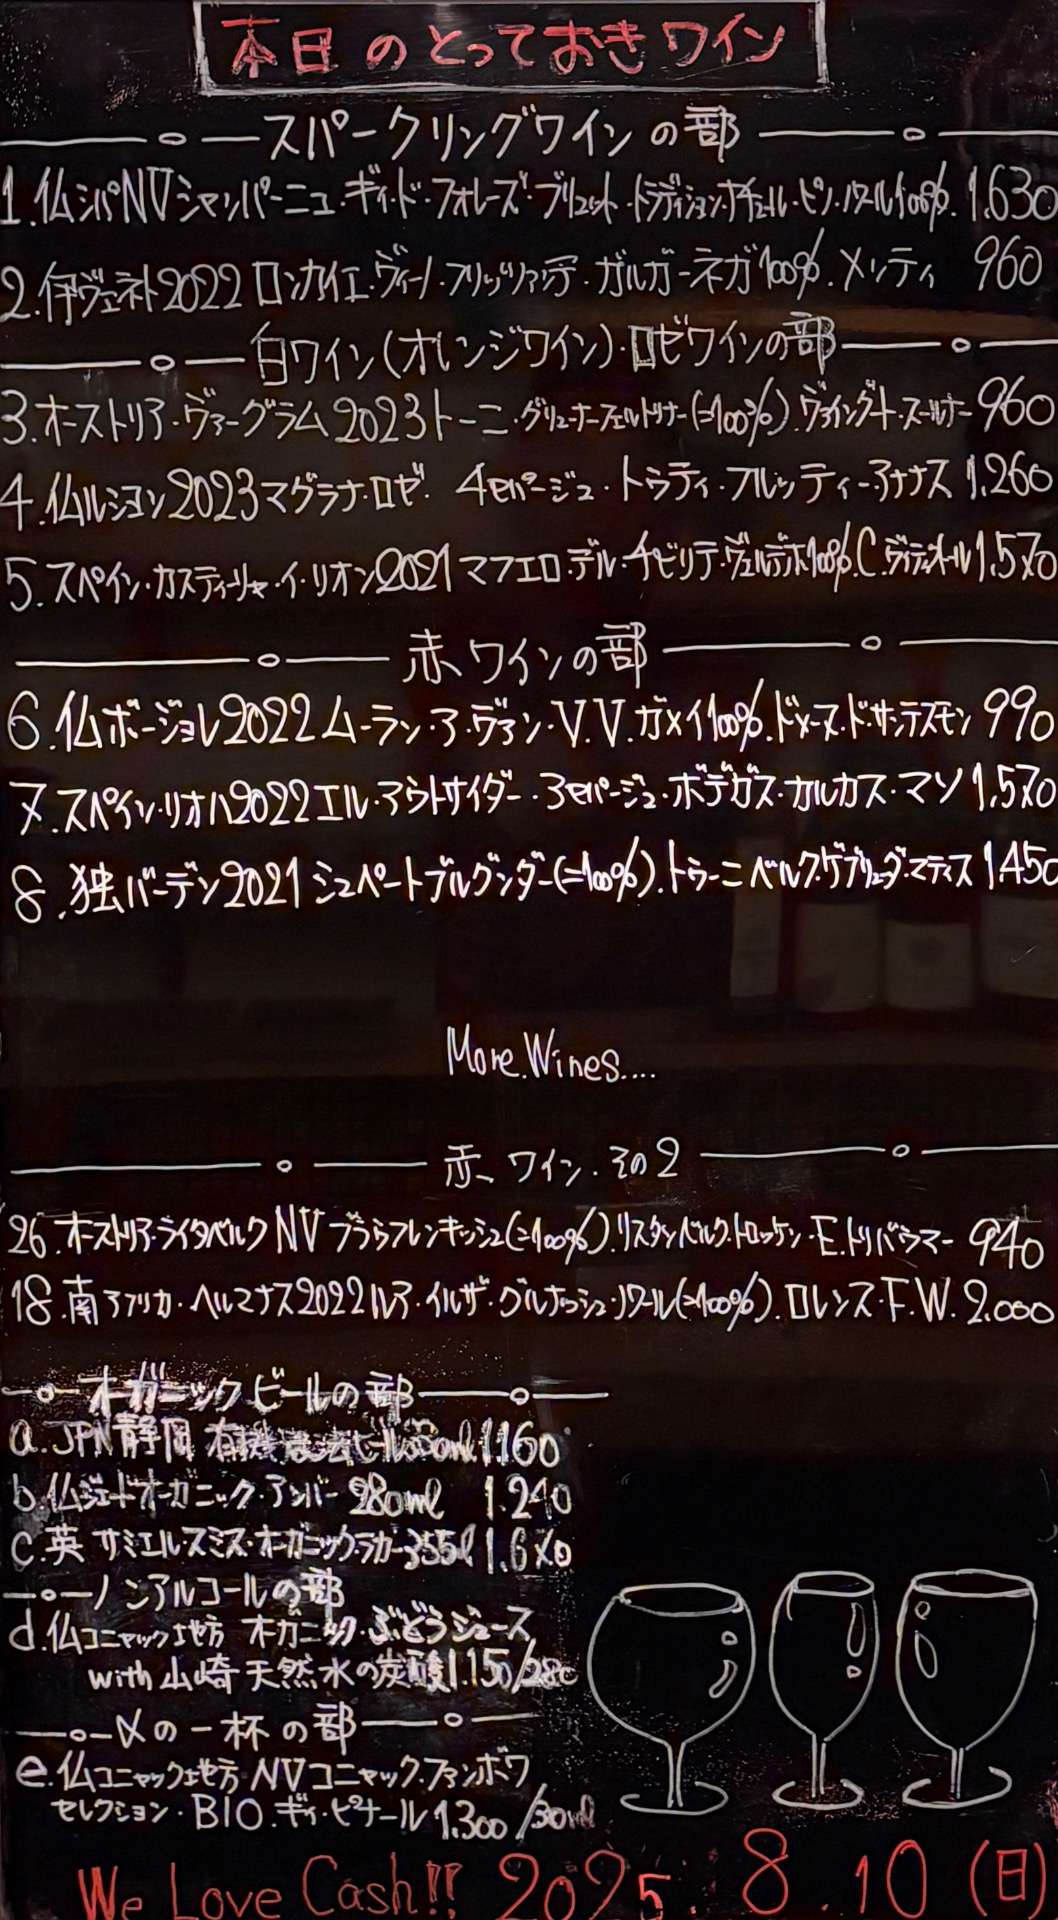 本日のとっておきワイン
スパークリングワインの部
1.仏シャンパNVシャンパーニュ・ギィ・ド・フォレーズ・ブリュット・トラディション・ナチュール・ピノ・ノワール100%. 1.630
2.伊ヴェネト2022 ロンカイエ・ヴィーノ・フリッツァンテ・ガルガーネガ100%.メンティ 960
白ワイン(オレンジワイン)・ロゼワインの部
3.オーストリア・ヴァーグラム2023トーニ・グリューナーフェルトリナー(=100%).ヴァイングート・ズールナー 960
4.仏ルション2023マグラナ・ロゼ. 4セパージュ・トゥティ・フルッティーアナナス 1,260
5.スペイン・カスティーリャ・イ・リオン2021マフエロ・デル・チビリテ・ヴェルデホ100%.C.ヴィティオール 1.570
赤ワインの部
6.仏ボージョレ2022ムーラン・ア・ヴァン・V.V.ガメイ100%.ドメーヌ・ド・サンテスモン 990
7.スペイン・リオハ2022エル・アウトサイダー・3セパージュ・ボデガス・カルカス・マソ 1.570
8.独バーデン2021シュペートブルグンダー(=100%).トゥーニベルク.ゲブリューダ・マティス 1.450
More.Wines....
赤ワイン.その2
26.オーストリア・ライタベルクNVブラウフレンキッシュ(=100%).リスタンベルク.トロッケン・E.トリバウマー 940
18.南アフリカ・ヘルマナス2022ルア・イルザ・グルナッシュ・ノワール(=100%).ロレンス・F.W. 2.000
オーガニックビールの部
a.JPN静岡 有機農法ビール 1.160
b.仏ジェードオーガニック・アンバー 280ml 1.240
c.英 サミエル・スミス・オーガニックラガー355ml 1.670
ノンアルコールの部
d.仏コニャック地方 オーガニック・ぶどうジュース
with 山崎 天然水の炭酸 1.150/280
〆の一杯の部
e.仏コニャック地方・NVコニャック.ファンボワ
セレクション・BIO.ギィ・ピナール 1.300/30ml
We Love Cash!! 2025.8.10(日)